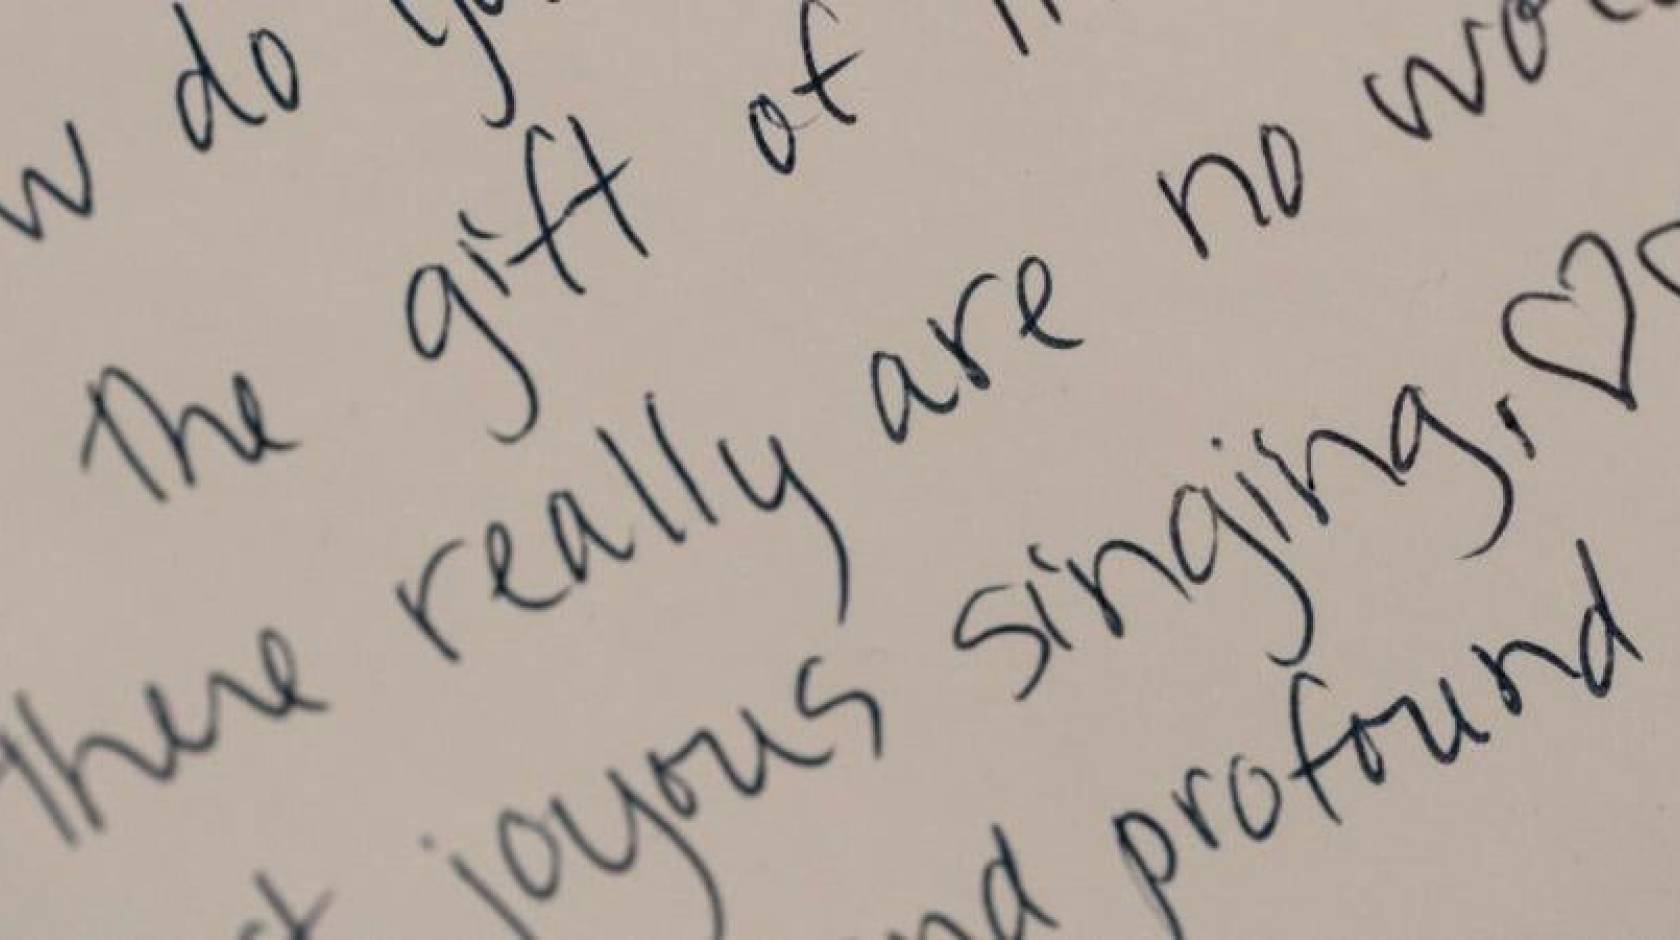 do
The gift of
There really are no
joyous singing, ♡
profound